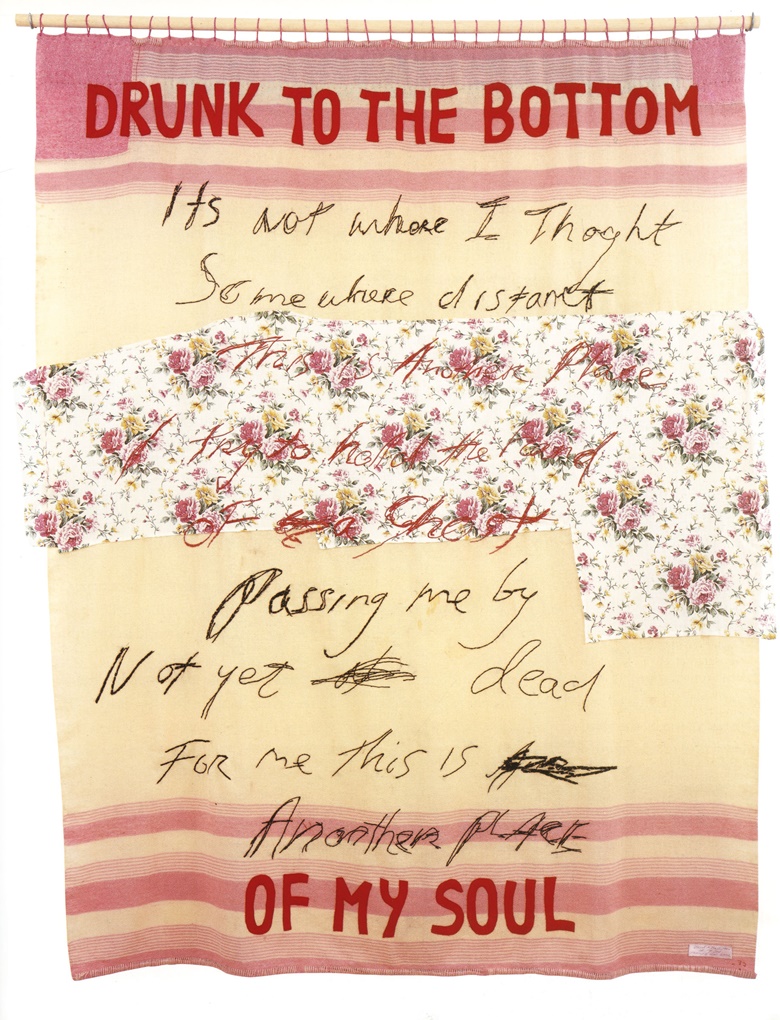 DRUNK TO THE BOTTOM
Its not where I Thoght
Somewhere distant
This is Another Place
I try to hold the hand
of Ghost
Passing me by
Not yet dead
For me this is
Anonther PLACE
OF MY SOUL